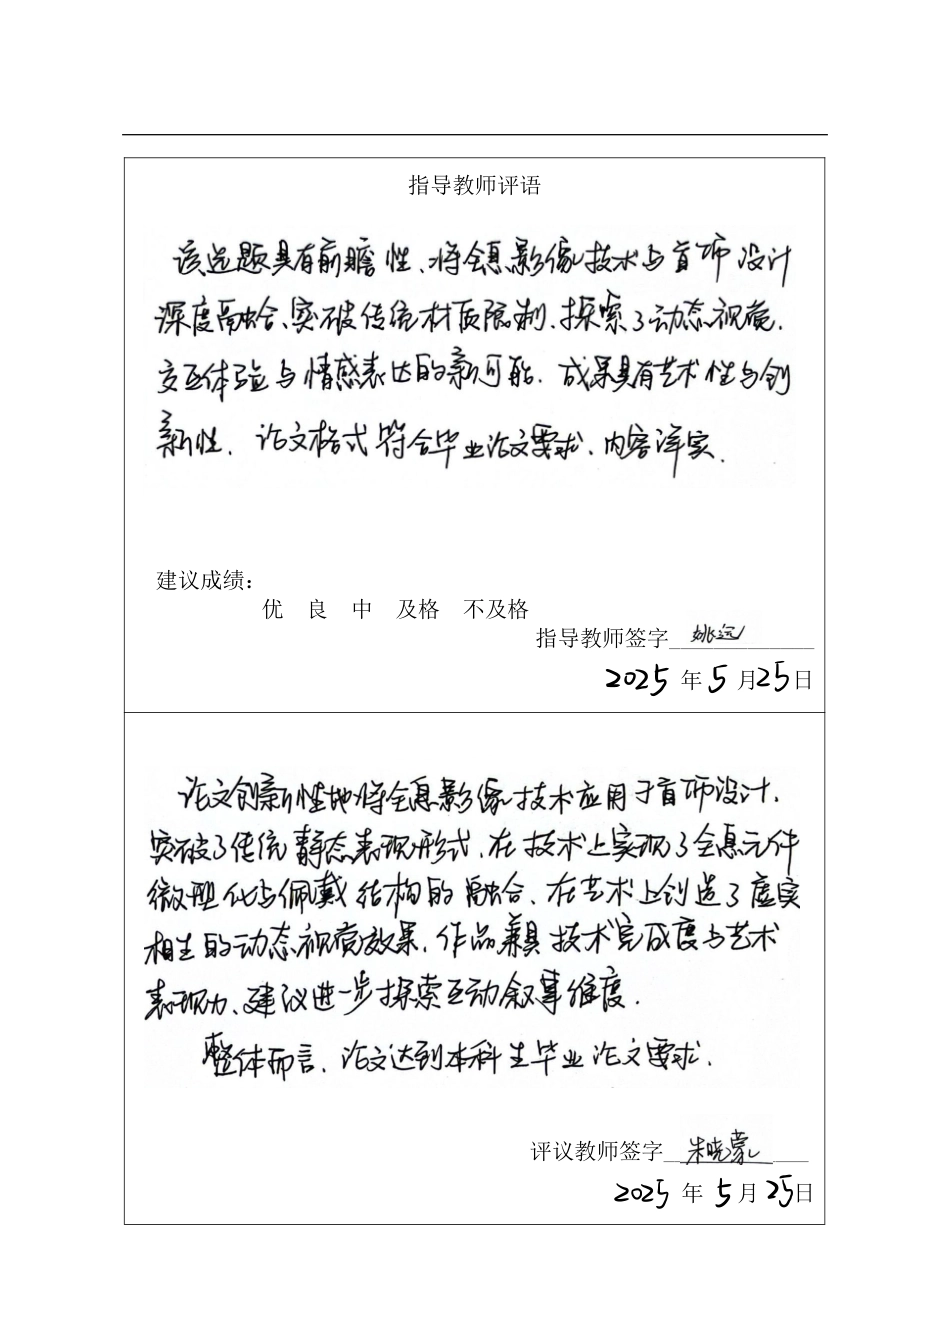 指导教师评语
该选题具有前瞻性、将全息影像技术与首饰设计
深度融合、突破传统材质限制、探索了动态视觉、
交互体验与情感表达的新可能. 成果具有艺术性与创
新性. 论文格式符合毕业论文要求、内容详实.
建议成绩：
优 良 中 及格 不及格
指导教师签字 姚远
2025 年 5 月 25 日
论文创新性地将全息影像技术应用于首饰设计、
突破了传统静态表现形式、在技术上实现了全息元件
微型化与佩戴结构的融合、在艺术上创造了虚实
相生的动态视觉效果. 作品兼具技术完成度与艺术
表现力、建议进一步探索互动叙事维度.
整体而言、论文达到本科生毕业论文要求.
评议教师签字 朱晓蒙
2025 年 5 月 25 日